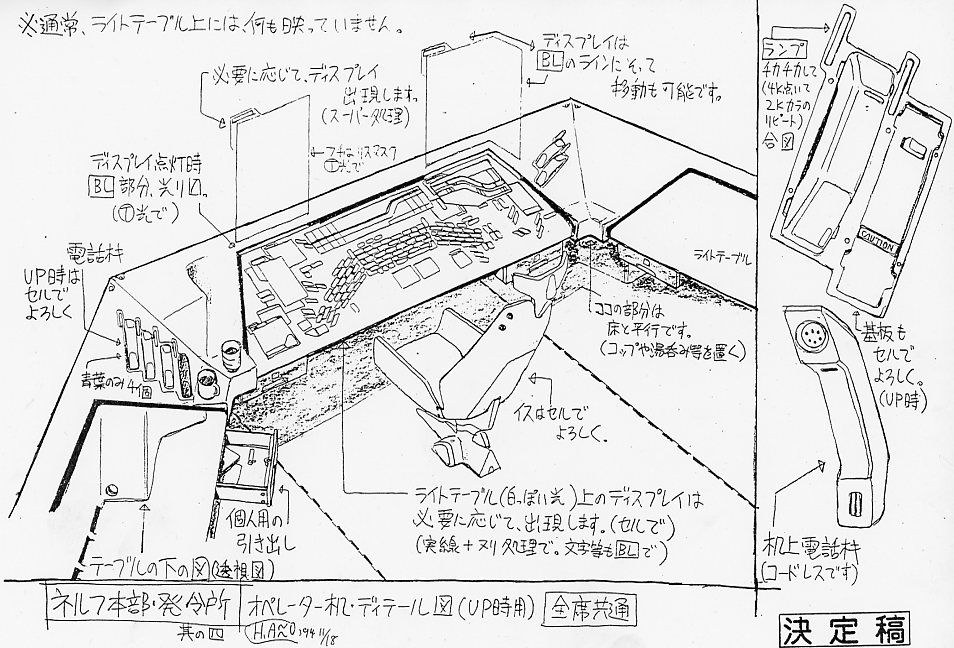 ※通常、ライトテーブル上には、何も映っていません。
必要に応じて、ディスプレイ
出現します。
(スーパー処理)
ディスプレイは
BLのラインにそって
移動も可能です。
ディスプレイ点灯時
BL部分、光り
(T光で)
T光で
電話材
UP時は
セルで
よろしく
青葉のみ4個
ライトテーブル
ココの部分は
床と平行です。
(コップや湯呑み等を置く)
イスはセルで
よろしく。
ライトテーブル(白っぽい光)上のディスプレイは
必要に応じて、出現します。(セルで)
(実線+ヌリ処理で。文字等もBLで)
個人用の
引き出し
テーブルの下の図(透視図)
ランプ
チカチカして
(4K点いて
2Kカラの
リピート)
合図
CAUTION
基板も
セルで
よろしく。
(UP時)
机上電話材
(コードレスです)
ネルフ本部・発令所
其の四
オペレーター机・ディテール図(UP時用)
全席共通
H.ANO '94 11/18
決定稿